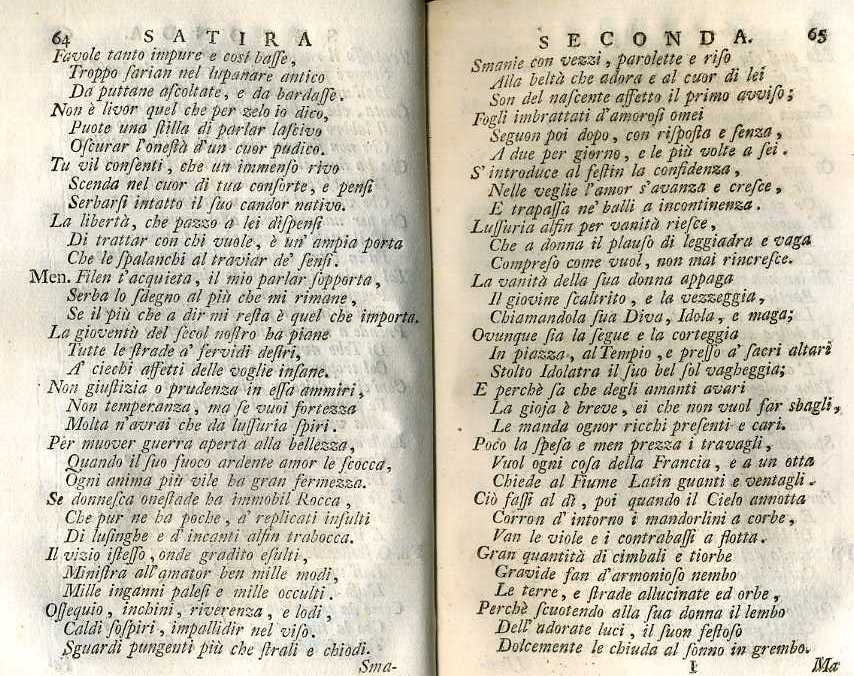 64 SATIRA
Favole tanto impure e così baſſe,
Troppo farian nel lupanare antico
Da puttane aſcoltate, e da bardaſſe.
Non è livor quel che per zelo io dico,
Puote una ſtilla di parlar laſcivo
Oſcurar l'oneſtà d'un cuor pudico.
Tu vil conſenti, che un immenſo rivo
Scenda nel cuor di tua conſorte, e penſi
Serbarſi intatto il ſuo candor nativo.
La libertà, che pazzo a lei diſpenſi
Di trattar con chi vuole, è un' ampia porta
Che le ſpalanchi al traviar de' ſenſi.
Men. Filen t'acquieta, il mio parlar ſopporta,
Serba lo ſdegno al più che mi rimane,
Se il più che a dir mi reſta è quel che importa.
La gioventù del ſecol noſtro ha piane
Tutte le ſtrade a' fervidi deſiri,
A' ciechi affetti delle voglie inſane.
Non giuſtizia o prudenza in eſſa ammiri,
Non temperanza, ma ſe vuoi fortezza
Molta n'avrai che da luſſuria ſpiri.
Per muover guerra aperta alla bellezza,
Quando il ſuo fuoco ardente amor le ſcocca,
Ogni anima più vile ha gran fermezza.
Se donneſca oneſtade ha immobil Rocca,
Che pur ne ha poche, a' replicati inſulti
Di luſinghe e d'incanti alfin trabocca.
Il vizio iſteſſo, onde gradito eſulti,
Miniſtra all'amator ben mille modi,
Mille inganni paleſi e mille occulti.
Oſſequio, inchini, riverenza, e lodi,
Caldi ſoſpiri, impallidir nel viſo.
Sguardi pungenti più che ſtrali e chiodi.
Sma-
SECONDA. 65
Smanie con vezzi, parolette e riſo
Alla beltà che adora e al cuor di lei
Son del naſcente affetto il primo avviſo;
Fogli imbrattati d'amoroſi omei
Seguon poi dopo, con riſpoſta e ſenza,
A due per giorno, e le più volte a ſei.
S' introduce al feſtin la confidenza,
Nelle veglie l'amor s'avanza e creſce,
E trapaſſa ne' balli a incontinenza.
Luſſuria alfin per vanità rieſce,
Che a donna il plauſo di leggiadra e vaga
Compreſo come vuol, non mai rincreſce.
La vanità della ſua donna appaga
Il giovine ſcaltrito, e la vezzeggia,
Chiamandola ſua Diva, Idola, e maga;
Ovunque ſia la ſegue e la corteggia
In piazza, al Tempio, e preſſo a' ſacri altari
Stolto Idolatra il ſuo bel ſol vagheggia;
E perchè ſa che degli amanti avari
La gioja è breve, ei che non vuol far sbagli,
Le manda ognor ricchi preſenti e cari.
Poco la ſpeſa e men prezza i travagli,
Vuol ogni coſa della Francia, e a un otta
Chiede al Fiume Latin guanti e ventagli.
Ciò faſſi al dì, poi quando il Cielo annotta
Corron d' intorno i mandorlini a corbe,
Van le viole e i contrabaſſi a flotta.
Gran quantità di cimbali e tiorbe
Gravide fan d'armonioſo nembo
Le terre, e ſtrade allucinate ed orbe,
Perchè ſcuotendo alla ſua donna il lembo
Dell' adorate luci, il ſuon feſtoſo
Dolcemente le chiuda al ſonno in grembo.
I Ma